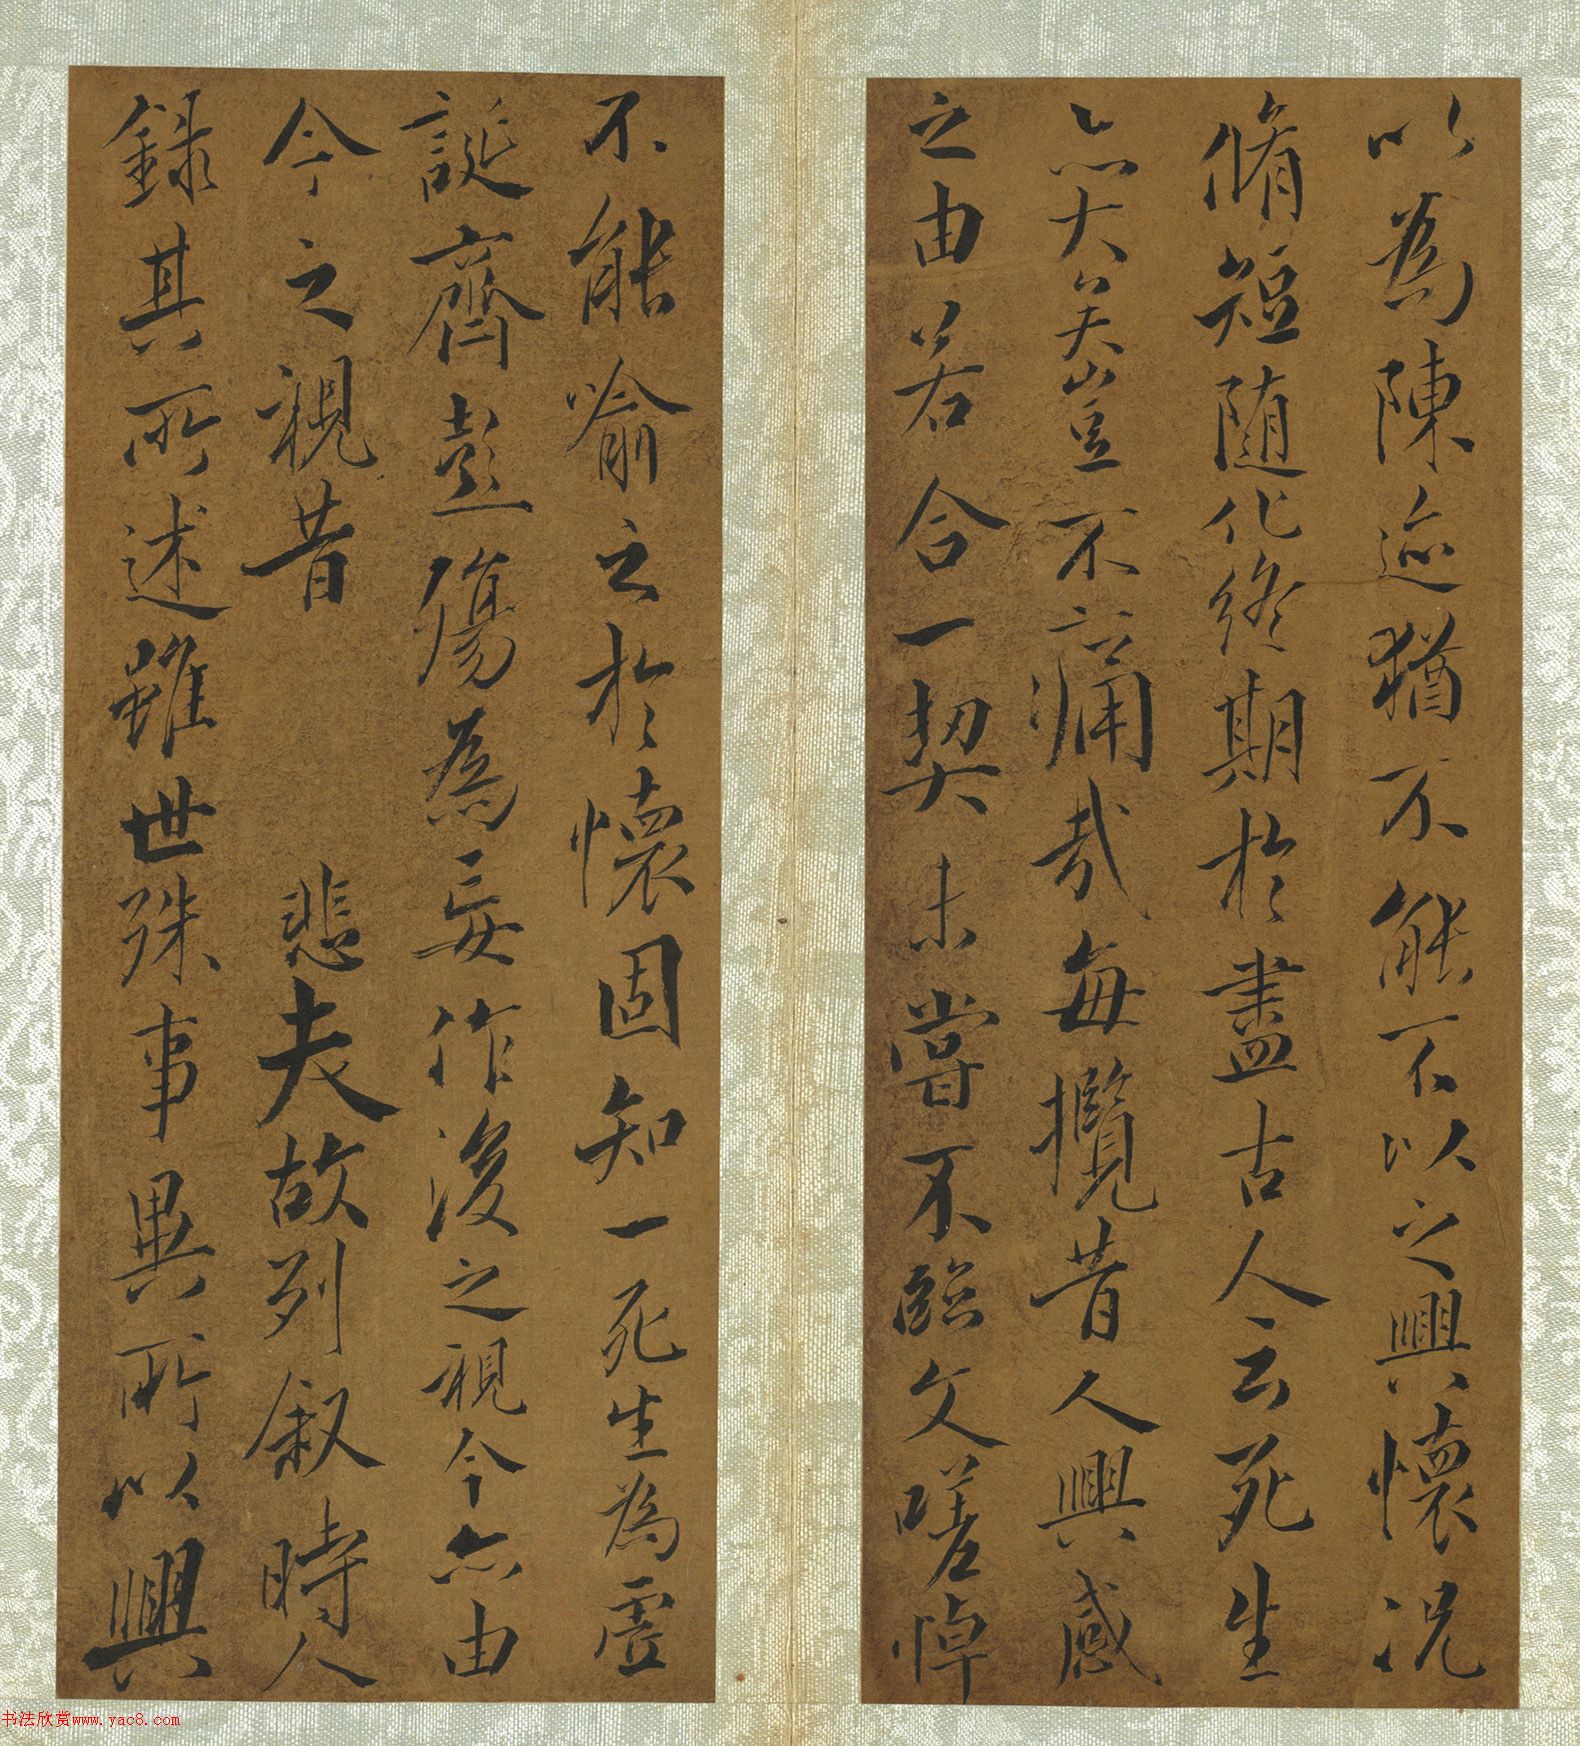 以為陳迹猶不能不以之興懷況
脩短随化終期於盡古人云死生
亦大矣豈不痛哉每攬昔人興感
之由若合一契未嘗不臨文嗟悼
不能喻之於懷固知一死生為虛
誕齊彭殤為妄作後之視今亦由
今之視昔 悲夫故列叙時人
錄其所述雖世殊事異所以興
书法欣赏www.yac8.com